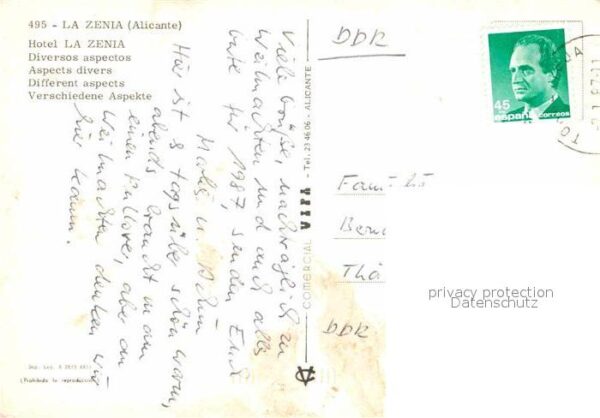 495 - LA ZENIA (Alicante)
Hotel LA ZENIA
Diversos aspectos
Aspects divers
Different aspects
Verschiedene Aspekte
Viele Grüße, nachträglich zu
Weihnachten und auch alles
Gute für 1987, senden Euch
Hier ist es tagsüber schön warm,
abends braucht man
einen Pullover, aber an
Weihnachten denken wir
hier kaum.
Dep. Leg. B
(Prohibida la reproducción)
COMERCIAL VIPA - Tel. 23 46 06 - ALICANTE
DDR
45
España correos
Familie
DDR
privacy protection
Datenschutz